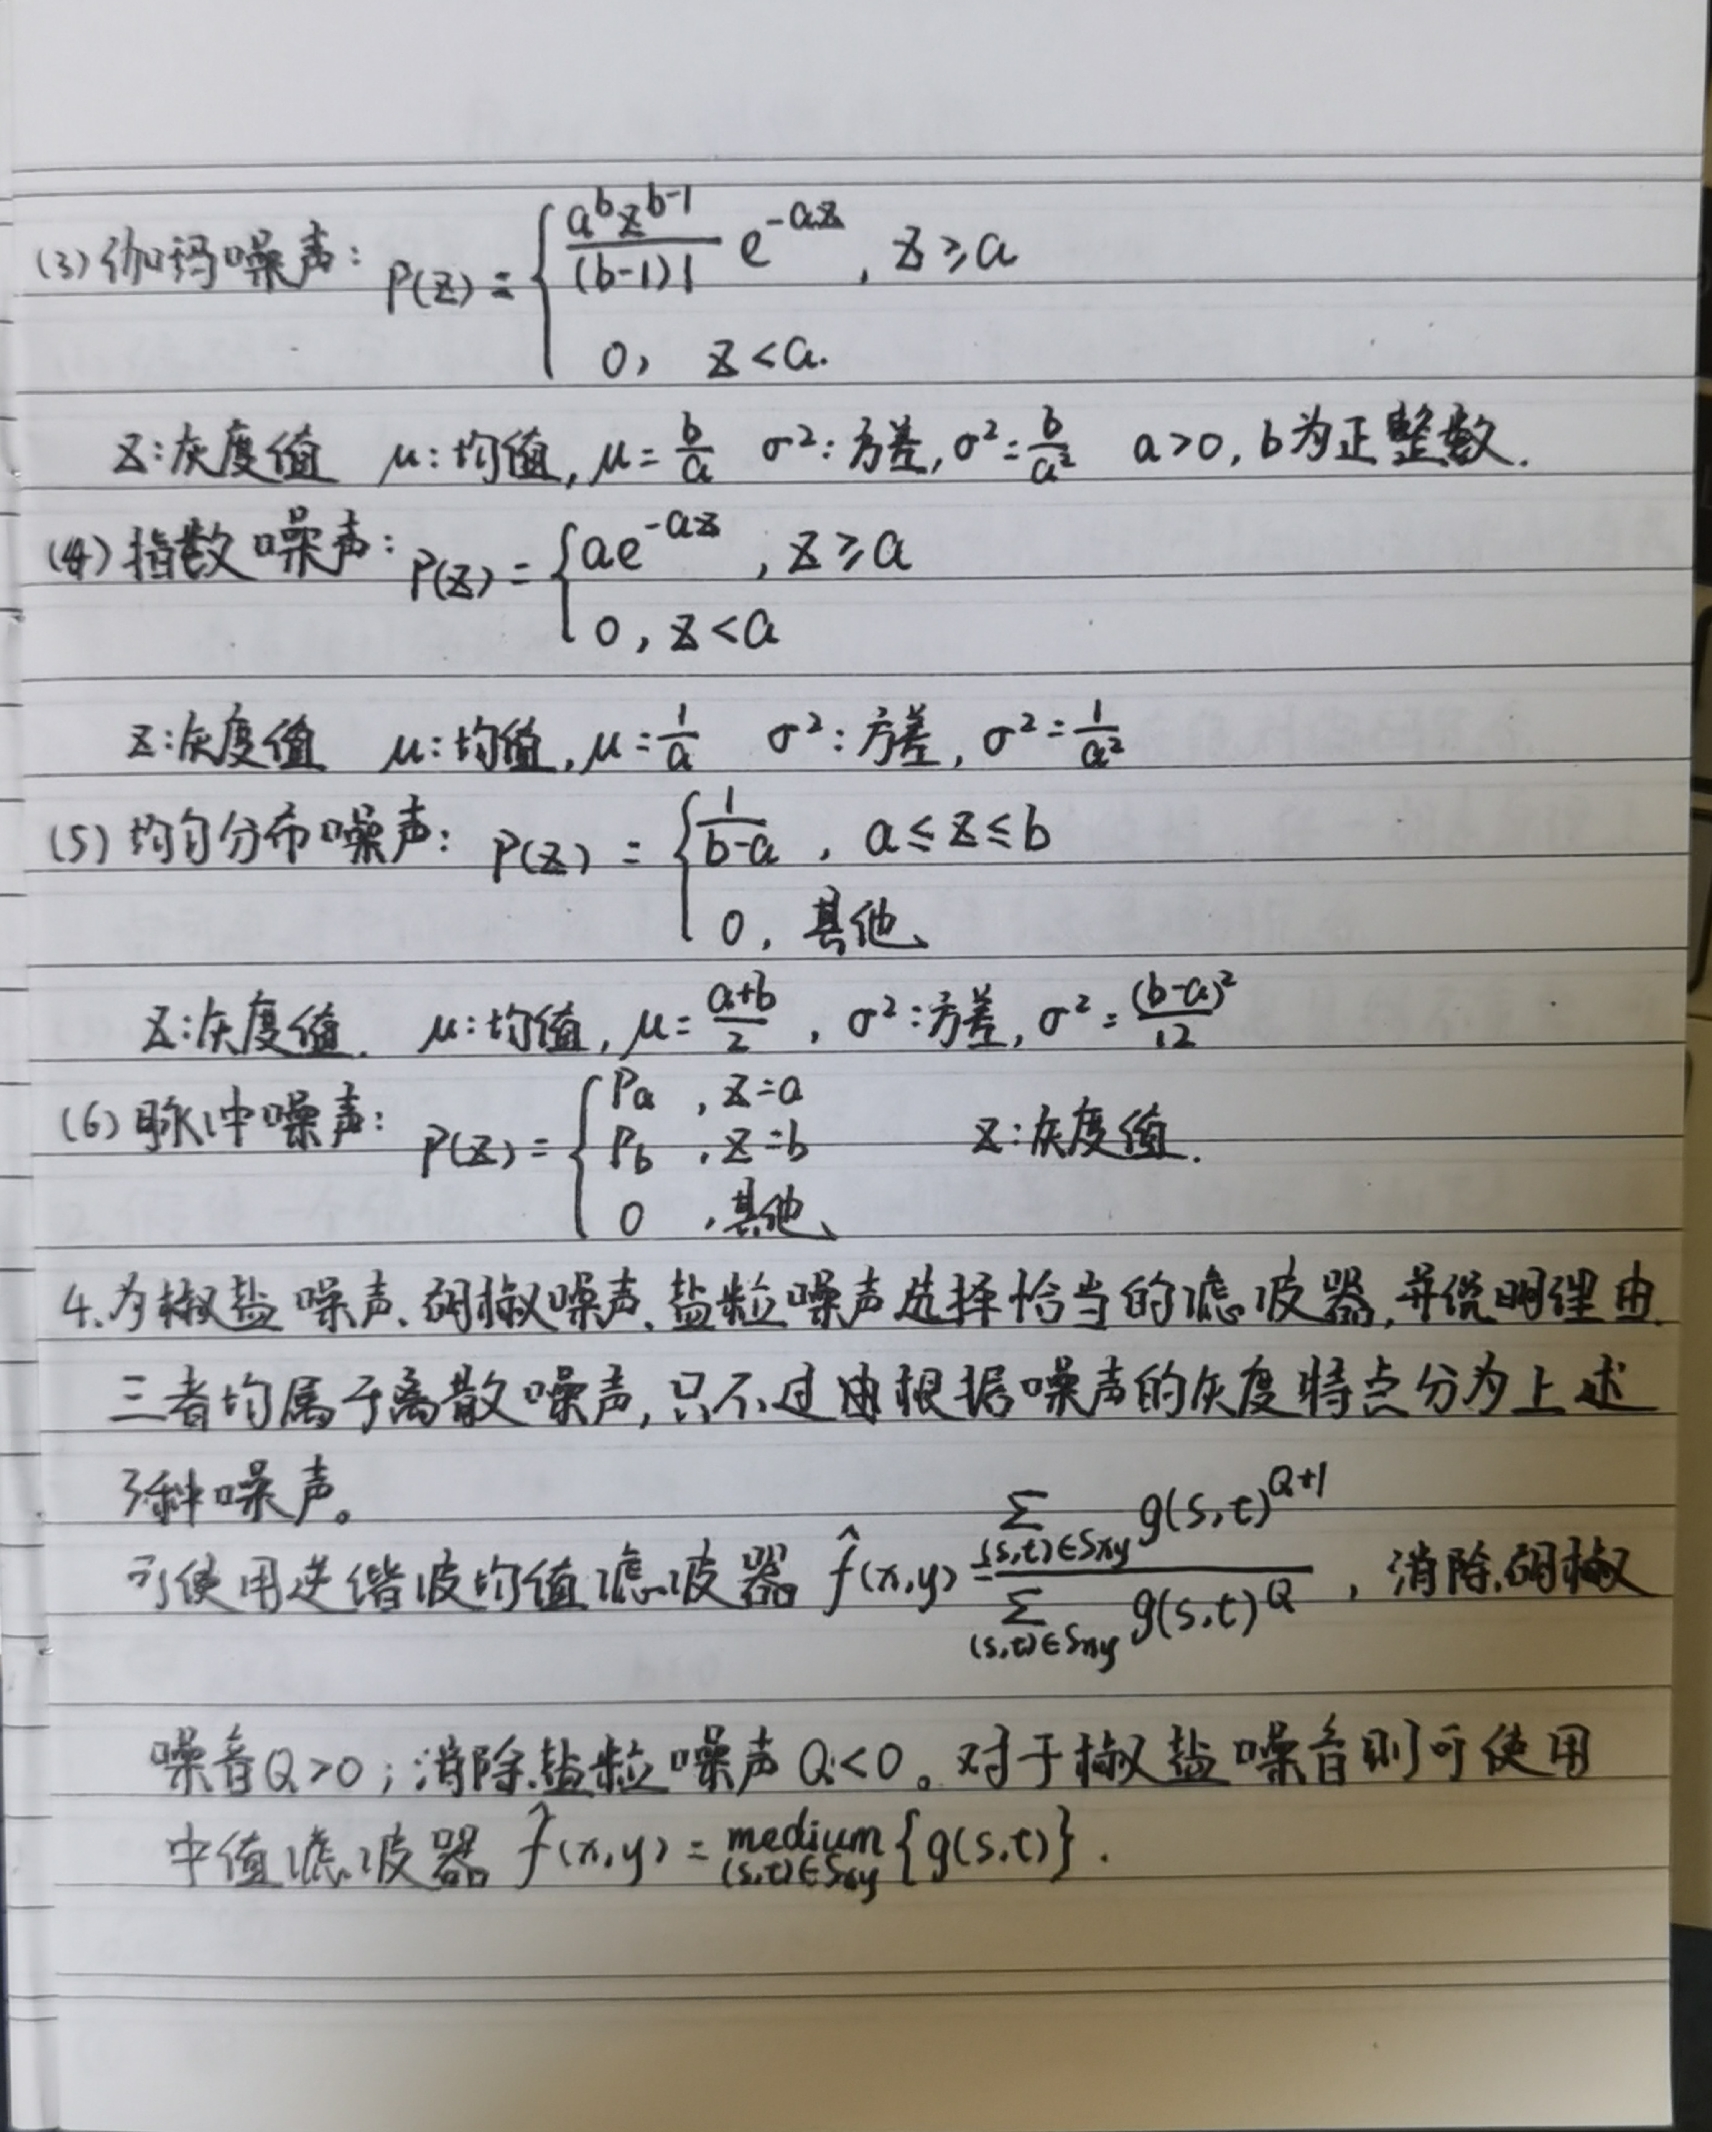 (3) 伽玛噪声: P(z) = { a^b z^{b-1} / (b-1)! e^{-az}, z ≥ a
0, z < a.
z:灰度值 μ:均值, μ = b/a σ²:方差, σ² = b/a² a>0, b为正整数.
(4) 指数噪声: P(z) = { ae^{-az}, z ≥ a
0, z < a
z:灰度值 μ:均值, μ = 1/a σ²:方差, σ² = 1/a²
(5) 均匀分布噪声: P(z) = { 1/(b-a), a ≤ z ≤ b
0, 其他
z:灰度值. μ:均值, μ = (a+b)/2, σ²:方差, σ² = (b-a)²/12
(6) 脉冲噪声: P(z) = { Pa, z=a
Pb, z=b z:灰度值.
0, 其他
4.为椒盐噪声、胡椒噪声、盐粒噪声选择恰当的滤波器,并说明理由.
三者均属于离散噪声,只不过根据噪声的灰度特点分为上述
3种噪声。
可使用逆谐波均值滤波器 f̂(x,y) = Σ_{(s,t)∈Sxy} g(s,t)^{Q+1} / Σ_{(s,t)∈Sxy} g(s,t)^Q, 消除胡椒
噪音Q>0;消除盐粒噪声Q<0。对于椒盐噪音则可使用
中值滤波器 f̂(x,y) = medium_{(s,t)∈Sxy} {g(s,t)}.